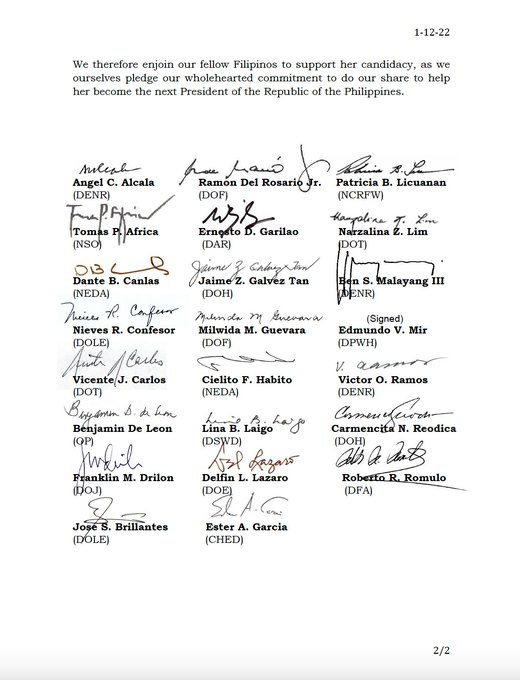 1-12-22
We therefore enjoin our fellow Filipinos to support her candidacy, as we
ourselves pledge our wholehearted commitment to do our share to help
her become the next President of the Republic of the Philippines.
Angel C. Alcala Ramon Del Rosario Jr. Patricia B. Licuanan
(DENR) (DOF) (NCRFW)
Tomas P. Africa Ernesto D. Garilao Narzalina Z. Lim
(NSO) (DAR) (DOT)
Dante B. Canlas Jaime Z. Galvez Tan Ben S. Malayang III
(NEDA) (DOH) (DENR)
(Signed)
Nieves R. Confesor Milwida M. Guevara Edmundo V. Mir
(DOLE) (DOF) (DPWH)
Vicente J. Carlos Cielito F. Habito Victor O. Ramos
(DOT) (NEDA) (DENR)
Benjamin De Leon Lina B. Laigo Carmencita N. Reodica
(OP) (DSWD) (DOH)
Franklin M. Drilon Delfin L. Lazaro Roberto R. Romulo
(DOJ) (DOE) (DFA)
Jose S. Brillantes Ester A. Garcia
(DOLE) (CHED)
2/2